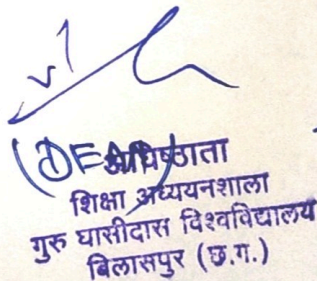 (DEAN)
अधिष्ठाता
शिक्षा अध्ययनशाला
गुरु घासीदास विश्वविद्यालय
बिलासपुर (छ.ग.)